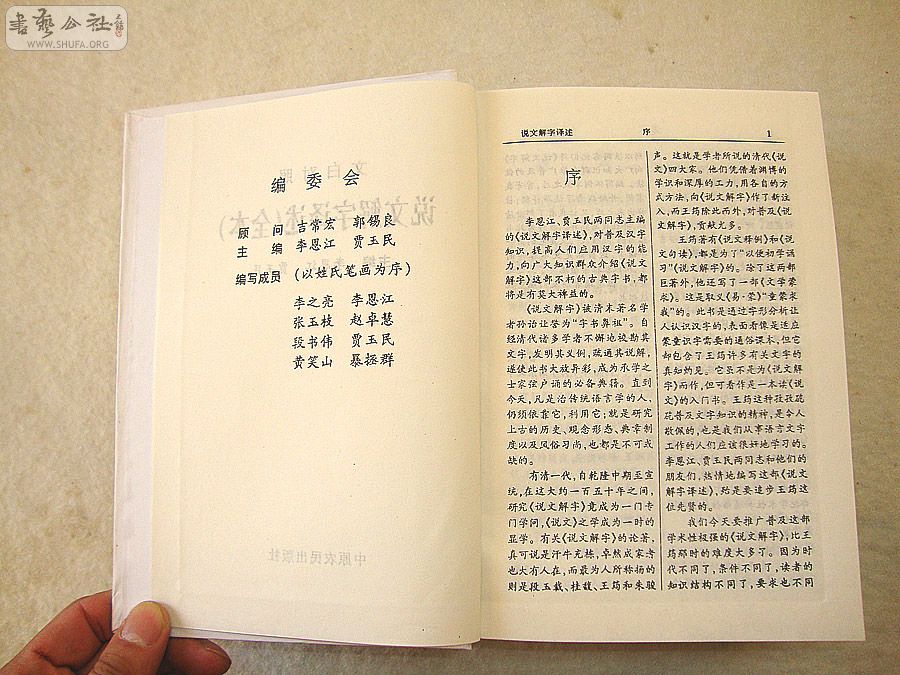 书艺公社
WWW.SHUFA.ORG
编委会
顾 问 吉常宏 郭锡良
主 编 李恩江 贾玉民
编写成员 (以姓氏笔画为序)
李之亮 李恩江
张玉枝 赵卓慧
段书伟 贾玉民
黄笑山 暴拯群
说文解字译述 序 1
序
李恩江、贾玉民两同志主编
的《说文解字译述》,对普及汉字
知识,提高人们应用汉字的能力,
向广大知识群众介绍《说文解
字》这部不朽的古典字书,都
将是有莫大裨益的。
《说文解字》被清末著名学
者孙诒让誉为“字书鼻祖”。自
经清代诸多学者不懈地校勘其
文字,发明其义例,疏通其说解,
遂使此书大放异彩,成为承学之
士家弦户诵的必备典籍。直到
今天,凡是治传统语言学的人,
仍须依靠它,利用它;就是研究
上古的历史、观念形态、典章制
度以及风俗习尚,也都是不可或
缺的。
有清一代,自乾隆中期至宣
统,在这大约一百五十年之间,
研究《说文解字》竟成为一门专
门学问,《说文》之学成为一时的
显学。有关《说文解字》的论著,
真可说是汗牛充栋,卓然成家者
也大有人在,而最为人所称扬的
则是段玉裁、桂馥、王筠和朱骏
声。这就是学者所说的清代《说
文》四大家。他们凭借着渊博的
学识和深厚的工力,用各自的方
式方法,向《说文解字》作了新注
入,而王筠除此而外,对普及《说
文解字》,贡献尤多。
王筠著有《说文释例》和《说
文句读》,都是为了“以便初学诵
习”《说文解字》的。除了这两部
巨著外,他还写了一部《文字蒙
求》。这是取义《易·蒙》“童蒙求
我”的。此书是通过字形分析让
人认识汉字的,表面看像是适应
童蒙识字需要的通俗课本,但它
却包含了王筠许多有关文字的
真知灼见。它虽不是为《说文解
字》而作,但可看作是一本读《说
文》的入门书。王筠这种孜孜矻
矻普及文字知识的精神,是令人
敬佩的,也是我们从事语言文字
工作的人们应该很好地学习的。
李恩江、贾玉民两同志和他们的
朋友们,热情地编写这部《说文
解字译述》,殆是要追步王筠这
位先贤的。
我们今天要推广普及这部
学术性极强的《说文解字》,比王
筠那时的难度大多了。因为时
代不同了,条件不同了,读者的
知识结构不同了,要求也不同